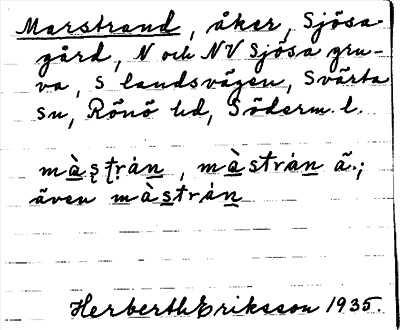 Marstrand, åker, Sjösa
gård, N och NV Sjösa gru-
va, S landsvägen, Svärta
sn, Rönö hd, Söderm. l.
màʂʈrȧn, màstrȧn ä.;
även màstrȧn
Herberth Eriksson 1935.